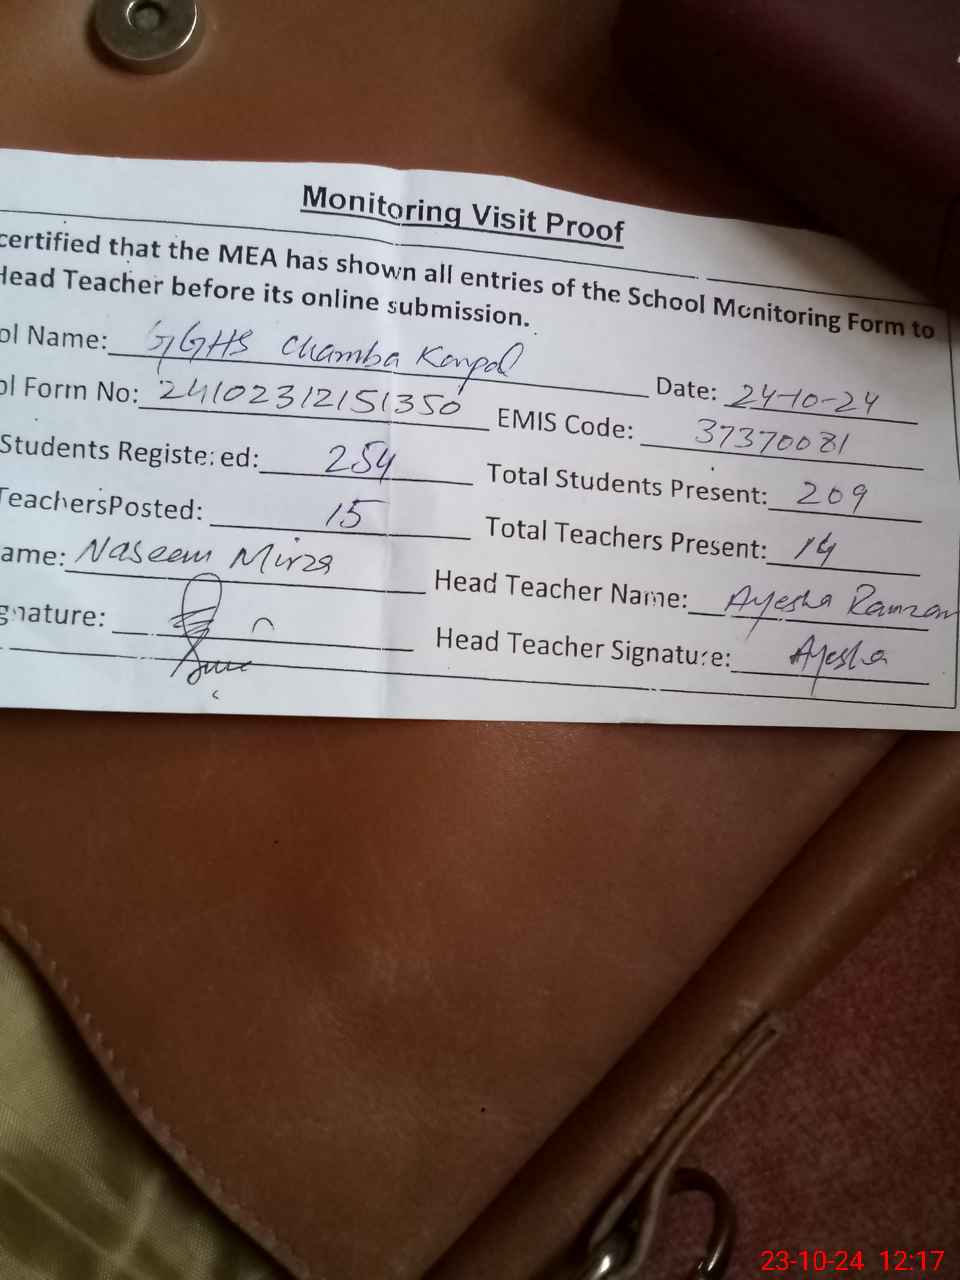 Monitoring Visit Proof
certified that the MEA has shown all entries of the School Monitoring Form to
Head Teacher before its online submission.
ol Name: GGHS Chamba Karpal Date: 24-10-24
ol Form No: 24102312151350 EMIS Code: 37370081
Students Registered: 254 Total Students Present: 209
TeachersPosted: 15 Total Teachers Present: 14
ame: Naseem Mirza Head Teacher Name: Ayesha Ramzan
gnature: Head Teacher Signature: Ayesha
23-10-24 12:17